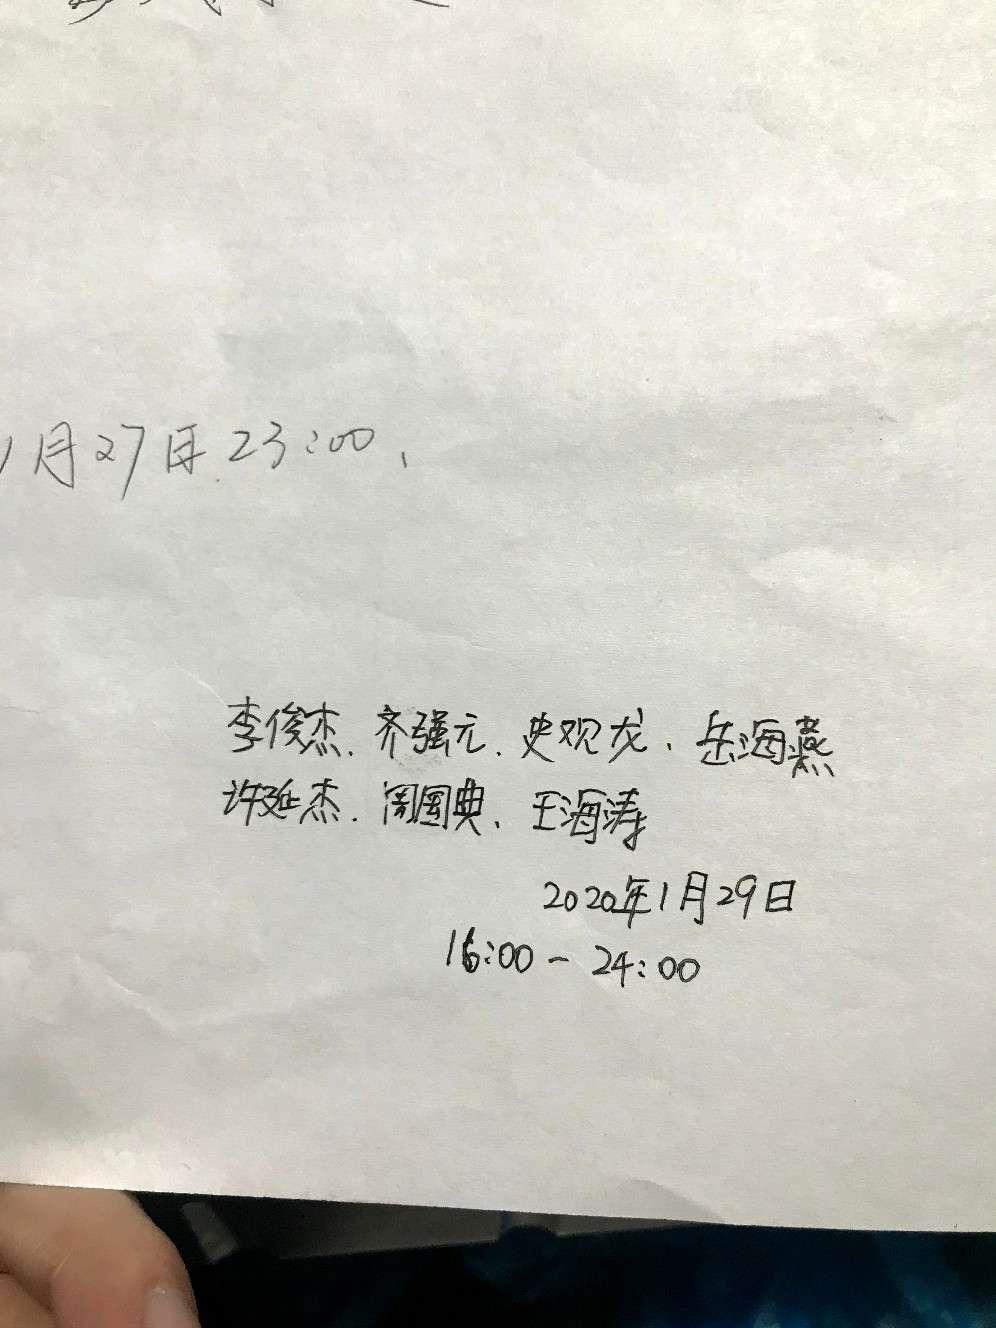 1月27日.23:00、
李俊杰、齐强元、史观龙、岳海燕
许延杰、周国典、王海涛
2020年1月29日
16:00-24:00